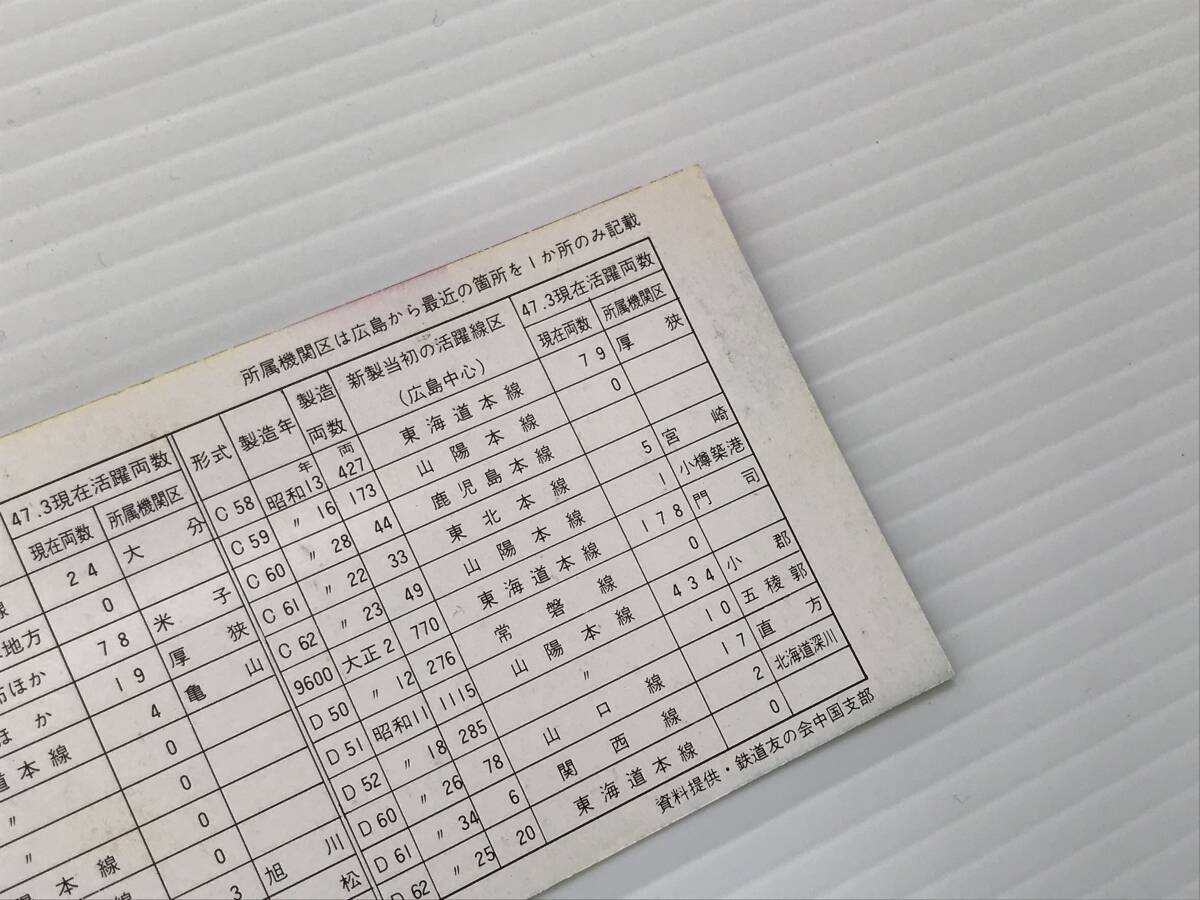 所属機関区は広島から最近の箇所を1か所のみ記載
47.3現在活躍両数
現在両数 所属機関区
24 大分
線 0
地方 78 米子
ほか 19 厚狭
ほか 4 亀山
道本線 0
〃 0
〃 0
本線 0
本線 3 旭川
松
形式 製造年 製造両数 新製当初の活躍線区(広島中心) 47.3現在活躍両数
現在両数 所属機関区
C58 昭和13年 427両 東海道本線 79 厚狭
C59 〃16 173 山陽本線 0
C60 〃28 44 鹿児島本線
C61 〃22 33 東北本線 5 宮崎
C62 〃23 49 山陽本線 1 小樽築港
9600 大正2 770 東海道本線 178 門司
D50 〃12 276 常磐線 0
D51 昭和11 1115 山陽本線 434 小郡
D52 〃18 285 〃 10 五稜郭
D60 〃26 78 山口線 17 直方
D61 〃34 6 関西線 2 北海道深川
D62 〃25 20 東海道本線 0
資料提供・鉄道友の会中国支部